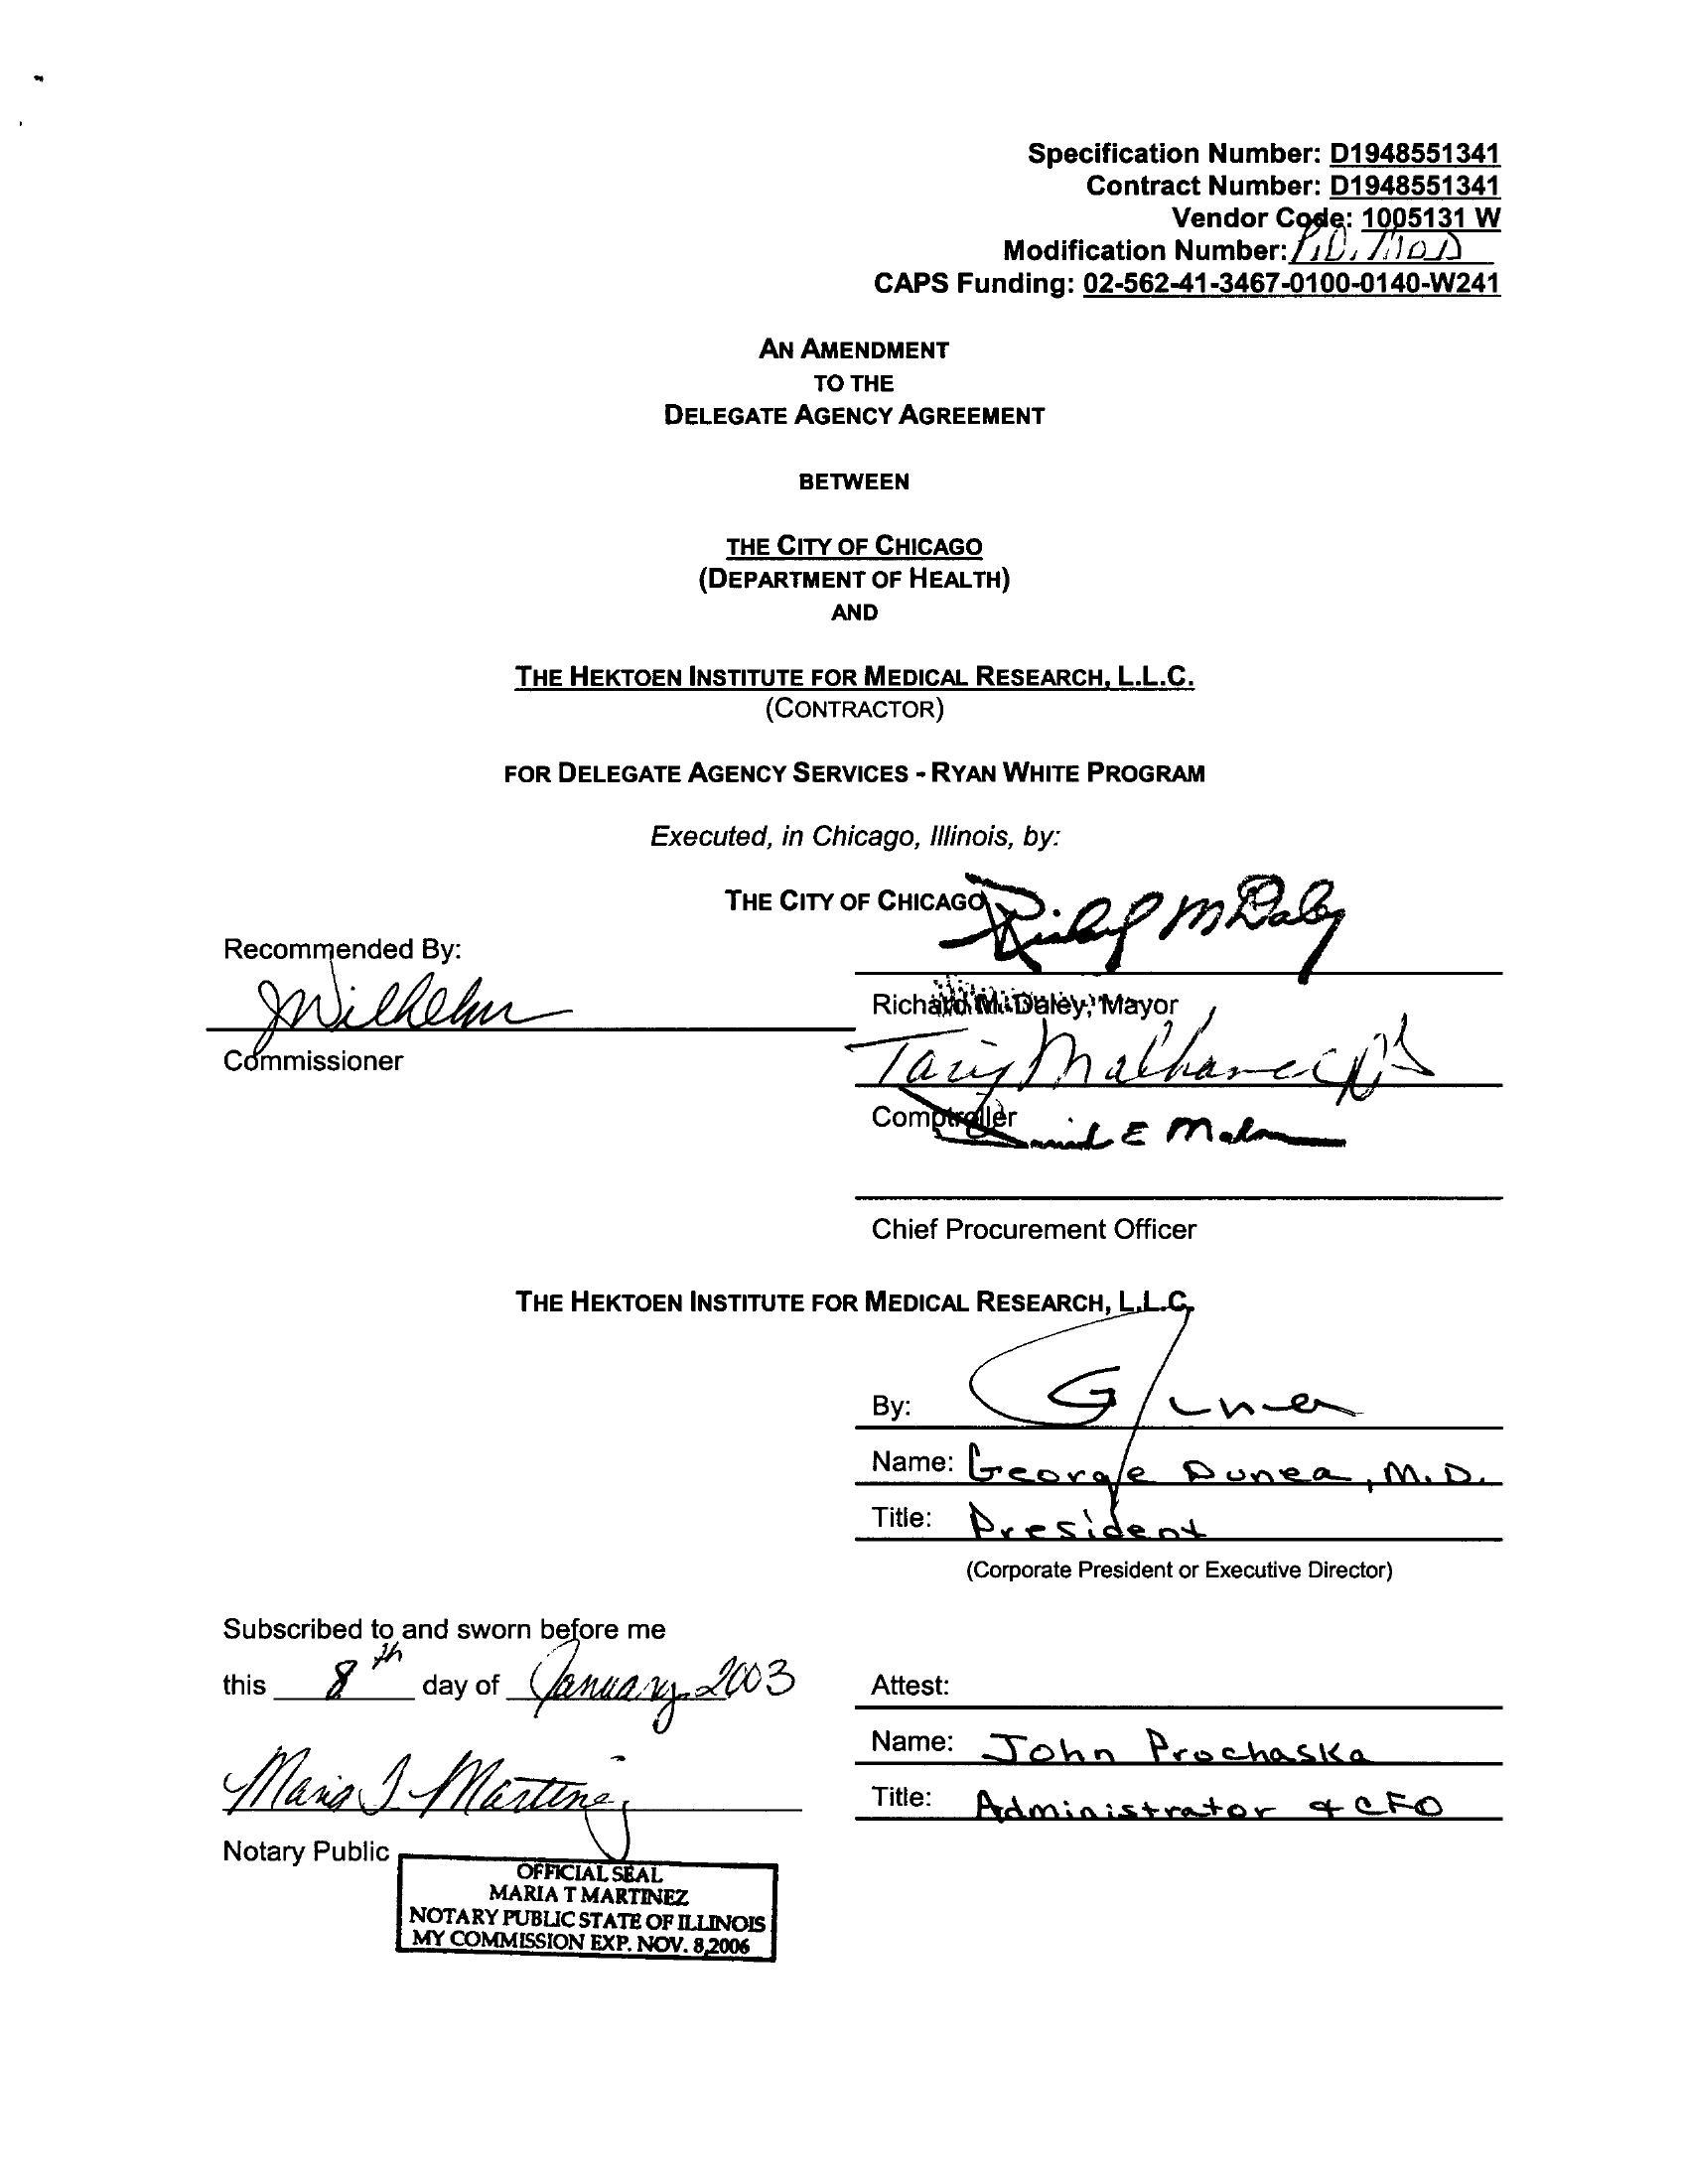 Specification Number: D1948551341
Contract Number: D1948551341
Vendor Code: 1005131 W
Modification Number:
CAPS Funding: 02-562-41-3467-0100-0140-W241
AN AMENDMENT
TO THE
DELEGATE AGENCY AGREEMENT
BETWEEN
THE CITY OF CHICAGO
(DEPARTMENT OF HEALTH)
AND
THE HEKTOEN INSTITUTE FOR MEDICAL RESEARCH, L.L.C.
(CONTRACTOR)
FOR DELEGATE AGENCY SERVICES - RYAN WHITE PROGRAM
Executed, in Chicago, Illinois, by:
THE CITY OF CHICAGO
Richard M Daley
Recommended By:
JWilhelm
Richard M. Daley, Mayor
Commissioner
Comptroller
E
Chief Procurement Officer
THE HEKTOEN INSTITUTE FOR MEDICAL RESEARCH, L.L.C.
By:
Name: George Dunea, M.D.
Title: President
(Corporate President or Executive Director)
Subscribed to and sworn before me
this 8th day of January 2003
Attest:
Name: John Prochaska
Maria T. Martinez
Title: Administrator & CFO
Notary Public
OFFICIAL SEAL
MARIA T MARTINEZ
NOTARY PUBLIC STATE OF ILLINOIS
MY COMMISSION EXP. NOV. 8,2006